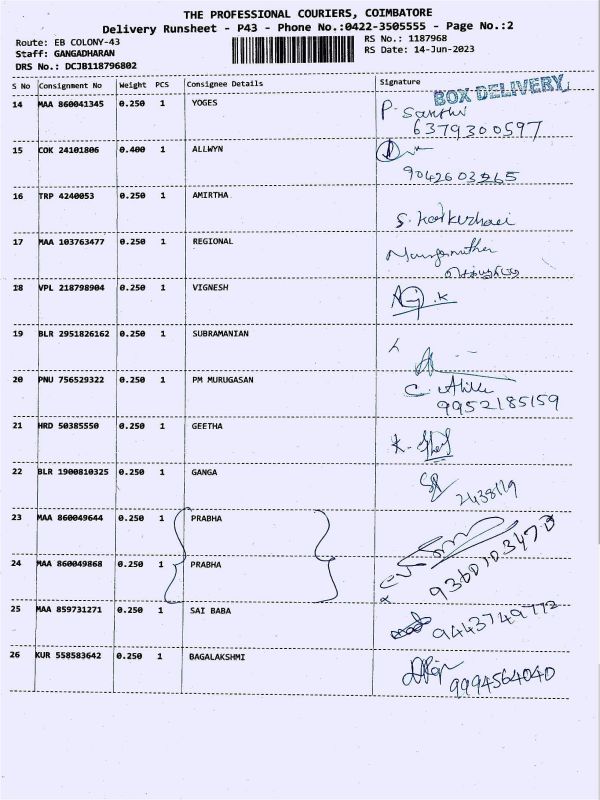 THE PROFESSIONAL COURIERS, COIMBATORE
Delivery Runsheet - P43 - Phone No.:0422-3505555 - Page No.:2
Route: EB COLONY-43
Staff: GANGADHARAN
DRS No.: DCJB118796802
RS No.: 1187968
RS Date: 14-Jun-2023
S No Consignment No Weight PCS Consignee Details Signature
BOX DELIVERY
14 MAA 860041345 0.250 1 YOGES P. Santhi
6379300597
15 COK 24101806 0.400 1 ALLWYN
9042603265
16 TRP 4240053 0.250 1 AMIRTHA
17 MAA 103763477 0.250 1 REGIONAL
18 VPL 218798904 0.250 1 VIGNESH
19 BLR 2951826162 0.250 1 SUBRAMANIAN
20 PNU 756529322 0.250 1 PM MURUGASAN
9952185159
21 HRD 50385550 0.250 1 GEETHA
22 BLR 1900810325 0.250 1 GANGA
2438119
23 MAA 860049644 0.250 1 PRABHA
24 MAA 860049868 0.250 1 PRABHA
9360103470
25 MAA 859731271 0.250 1 SAI BABA 9443749772
26 KUR 558583642 0.250 1 BAGALAKSHMI 9994564040